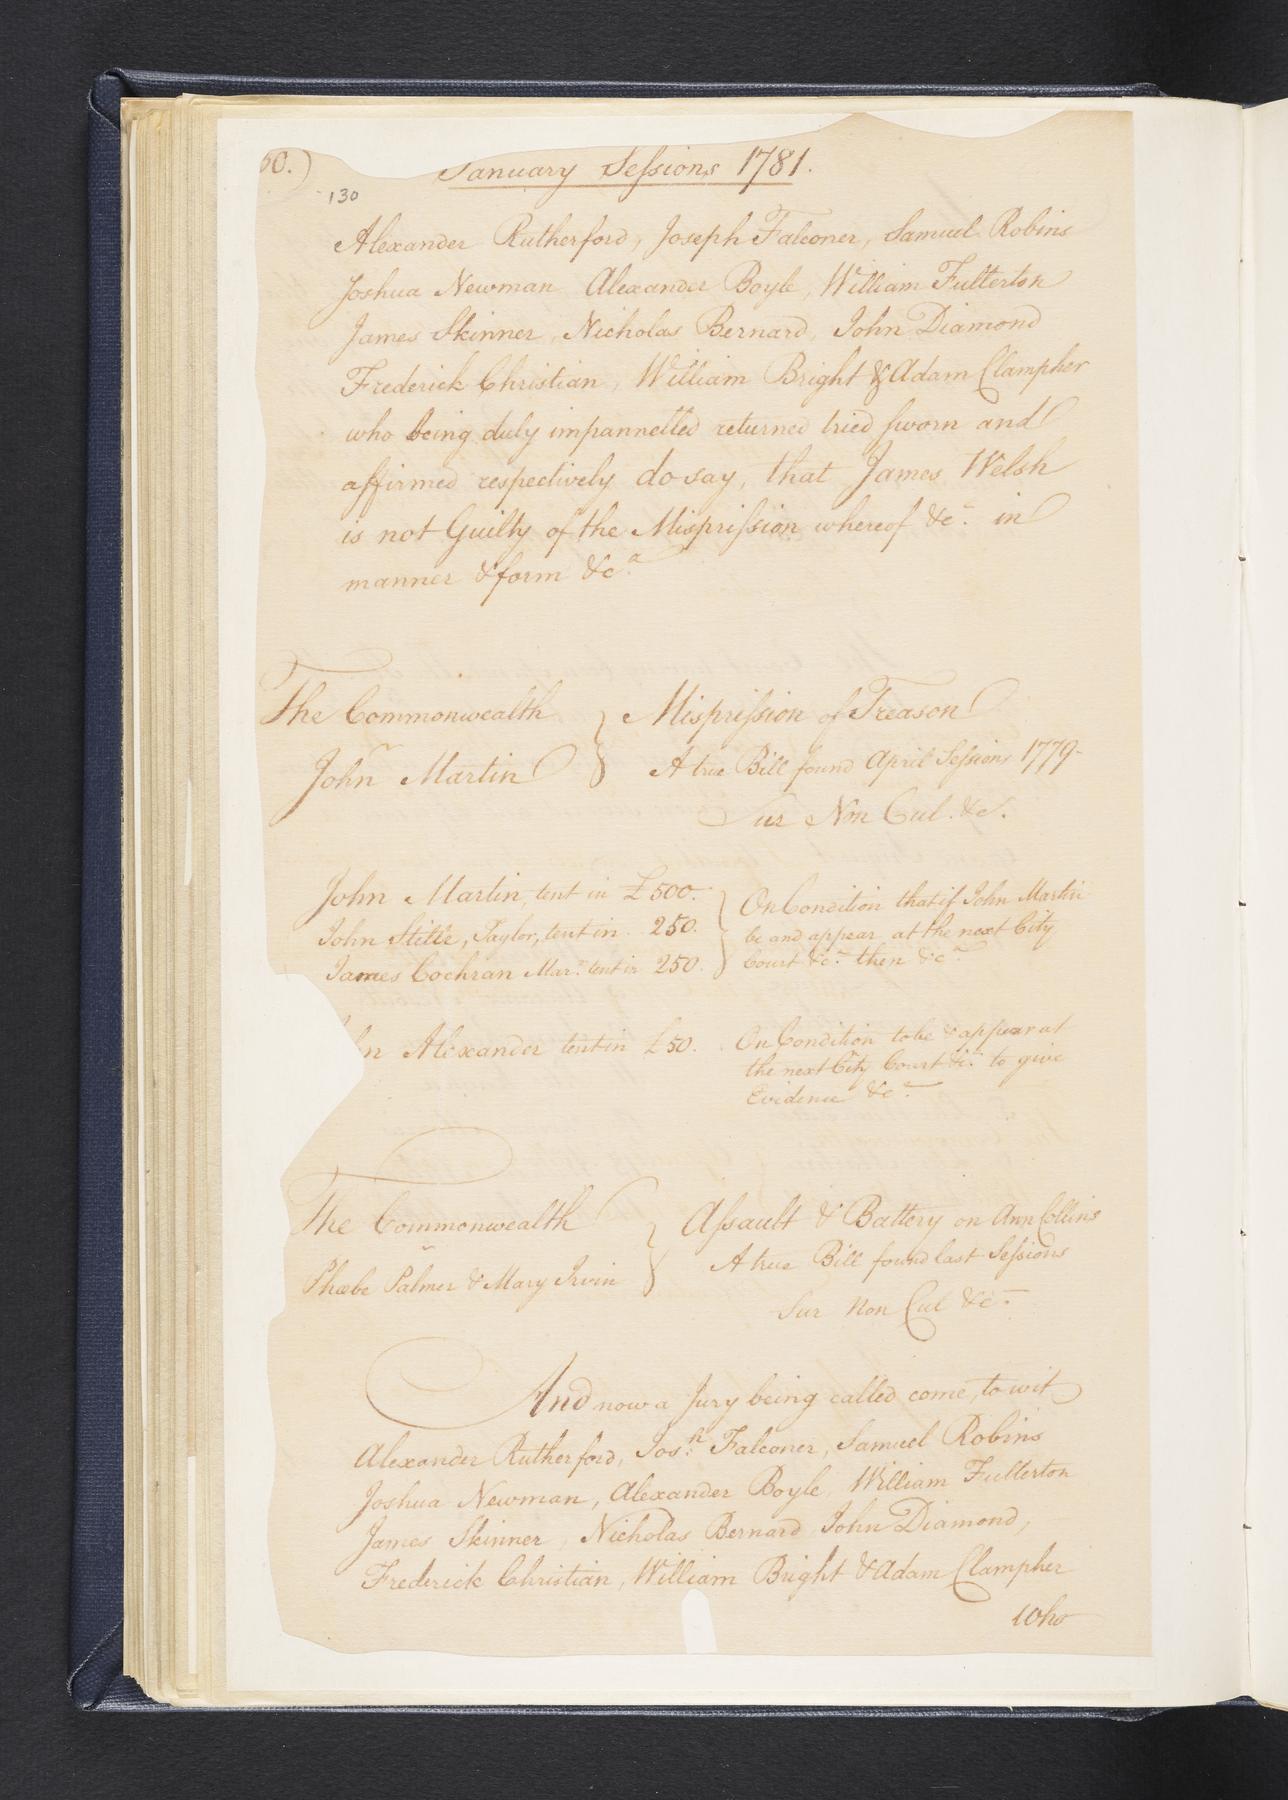 60.)
January Seſsions 1781.
130
Alexander Rutherford, Joseph Falconer, Samuel Robins
Joshua Newman Alexander Boyle, William Fullerton
James Skinner, Nicholas Bernard, John Diamond
Frederick Christian, William Bright & Adam Clampher
who being duly impannelled returned tried ſworn and
affirmed respectively do say, that James Welsh
is not Guilty of the Mispriſsion whereof &c. in
manner & form &cᵃ.
The Commonwealth } Mispriſsion of Treason
John Martin } A true Bill found April Seſsions 1779-
Sur Non Cul. &c.
John Martin, tent in £500.
John Stille, Taylor, tent in 250.
James Cochran Mar.ʳ tent in 250.
} On Condition that if John Martin
be and appear at the next City
Court &c. then &c.
hn Alexander tent in £50.
On Condition to be & appear at
the next City Court &c. to give
Evidence &c.
The Commonwealth } Aſsault & Battery on Ann Collins
Phœbe Palmer & Mary Irvin } A true Bill found last Seſsions
Sur Non Cul &c.
And now a Jury being called come, to wit
Alexander Rutherford, Jos.ʰ Falconer, Samuel Robins
Joshua Newman, Alexander Boyle, William Fullerton
James Skinner, Nicholas Bernard John Diamond,
Frederick Christian, William Bright & Adam Clampher
who